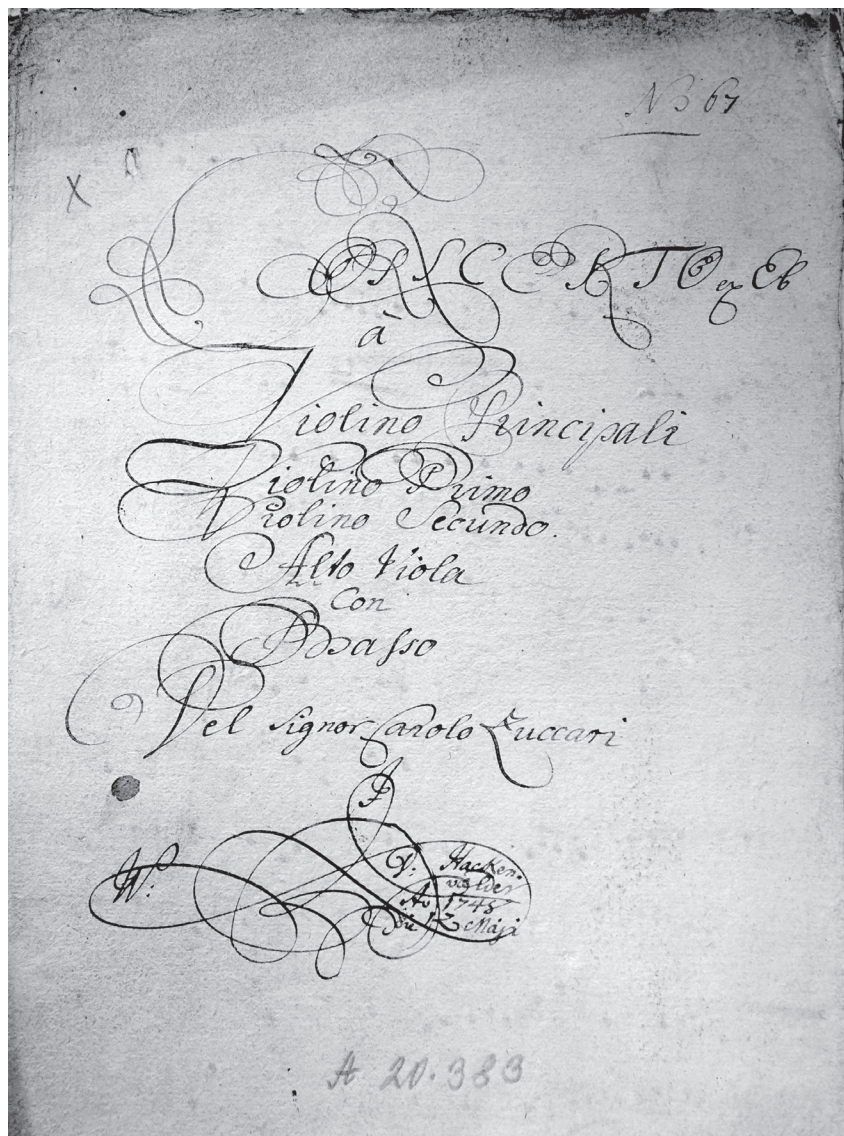 N 3 67
X
CONCERTO ex Eb
à
Violino Principali
Violino Primo
Violino Secundo.
Alto Viola
Con
Basso
Del Signor Carolo Zuccari
W:
V: Hacken
Ao 1745
die 12 Maji
A 20.383